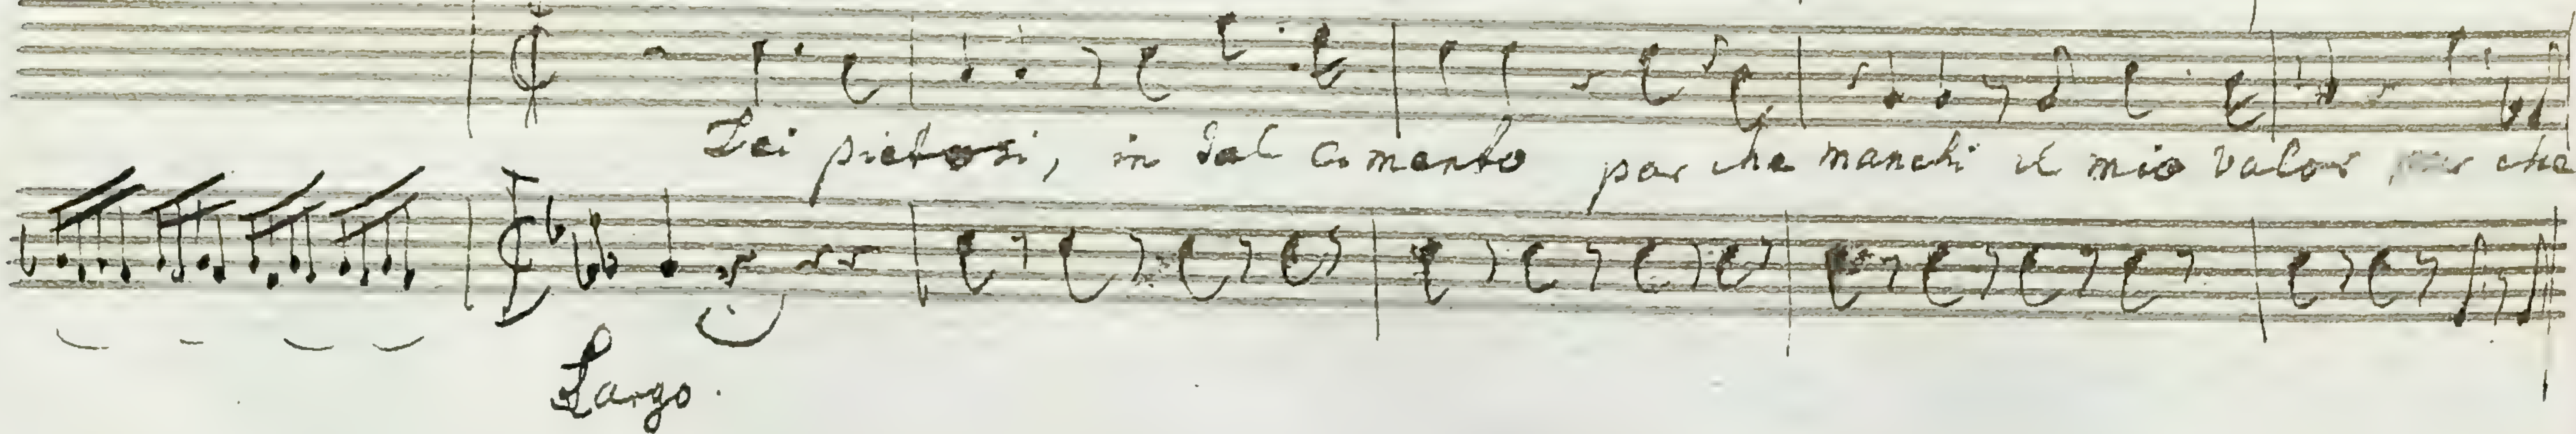 Dei pietosi, in tal cimento per che manchi il mio valor per che
Largo.